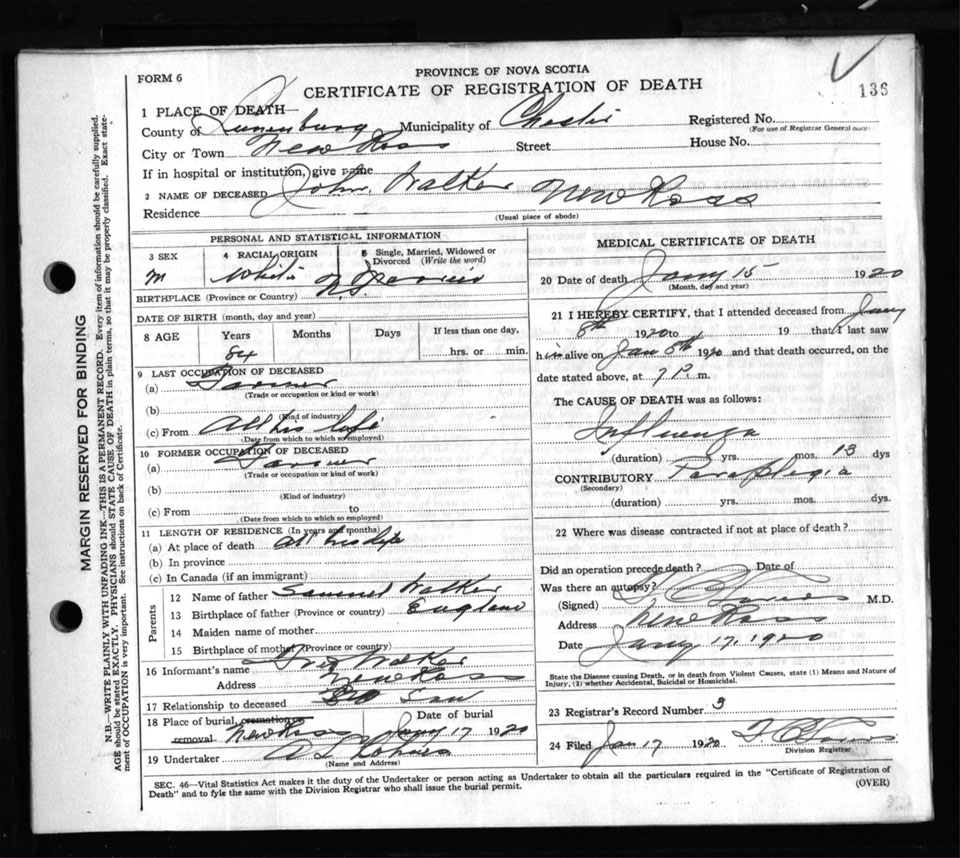 FORM 6
PROVINCE OF NOVA SCOTIA
CERTIFICATE OF REGISTRATION OF DEATH
136
1 PLACE OF DEATH
County of Lunenburg Municipality of Chester Registered No.
(For use of Registrar General only)
City or Town New Ross Street House No.
If in hospital or institution, give name
2 NAME OF DECEASED John Walker
Residence New Ross
(Usual place of abode)
PERSONAL AND STATISTICAL INFORMATION
3 SEX 4 RACIAL ORIGIN 5 Single, Married, Widowed or Divorced (Write the word)
M White
BIRTHPLACE (Province or Country) N.S.
DATE OF BIRTH (month, day and year)
8 AGE Years Months Days If less than one day,
84 hrs. or min.
9 LAST OCCUPATION OF DECEASED
(a) Farmer
(Trade or occupation or kind of work)
(b)
(Kind of industry)
(c) From All his life
(Date from which to which so employed)
10 FORMER OCCUPATION OF DECEASED
(a) Farmer
(Trade or occupation or kind of work)
(b)
(Kind of industry)
(c) From to
(Date from which to which so employed)
11 LENGTH OF RESIDENCE (In years and months)
(a) At place of death all his life
(b) In province
(c) In Canada (if an immigrant)
Parents
12 Name of father Samuel Walker
13 Birthplace of father (Province or country) England
14 Maiden name of mother
15 Birthplace of mother (Province or country)
16 Informant's name Walker
Address New Ross
17 Relationship to deceased Son
18 Place of burial, cremation or removal New Ross Date of burial Jany 17 1920
19 Undertaker
(Name and Address)
MEDICAL CERTIFICATE OF DEATH
20 Date of death Jany 15 1920
(Month, day and year)
21 I HEREBY CERTIFY, that I attended deceased from Jany
8th 1920 to 19 that I last saw
him alive on Jan 8th 1920 and that death occurred, on the
date stated above, at 7 P. m.
The CAUSE OF DEATH was as follows:
Influenza
(duration) yrs. mos. 13 dys
CONTRIBUTORY Paraplegia
(Secondary)
(duration) yrs. mos. dys.
22 Where was disease contracted if not at place of death?
Did an operation precede death? Date of
Was there an autopsy?
(Signed) M.D.
Address New Ross
Date Jany 17, 1920
State the Disease causing Death, or in death from Violent Causes, state (1) Means and Nature of
Injury, (2) whether Accidental, Suicidal or Homicidal.
23 Registrar's Record Number 3
24 Filed Jan 17 1920
Division Registrar
SEC. 46—Vital Statistics Act makes it the duty of the Undertaker or person acting as Undertaker to obtain all the particulars required in the "Certificate of Registration of
Death" and to fyle the same with the Division Registrar who shall issue the burial permit. (OVER)
MARGIN RESERVED FOR BINDING
N.B.—WRITE PLAINLY WITH UNFADING INK—THIS IS A PERMANENT RECORD. Every item of information should be carefully supplied.
AGE should be stated EXACTLY. PHYSICIANS should STATE CAUSE OF DEATH in plain terms, so that it may be properly classified. Exact state-
ment of OCCUPATION is very important. See instructions on back of Certificate.